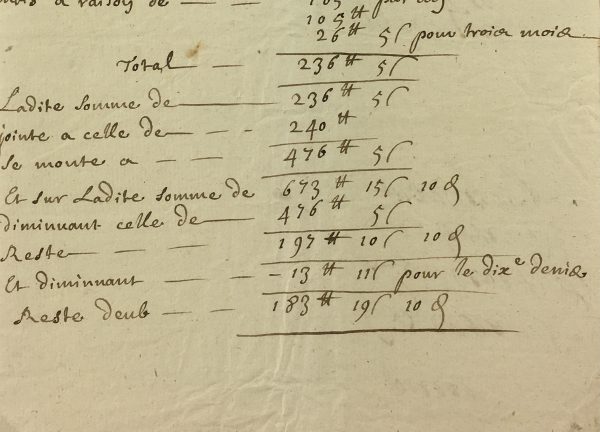 a raison de — — 105 ₶ par an
105 ₶
26 ₶ 5 s pour trois mois
Total — — 236 ₶ 5 s
Ladite somme de — 236 ₶ 5 s
jointe a celle de — — - 240 ₶
Se monte a — — 476 ₶ 5 s
Et sur Ladite somme de 673 ₶ 15 s 10 d
diminuant celle de — 476 ₶ 5 s
Reste — — — 197 ₶ 10 s 10 d
Et diminuant — — - 13 ₶ 11 s pour le dixe denie
Reste deub — — 183 ₶ 19 s 10 d